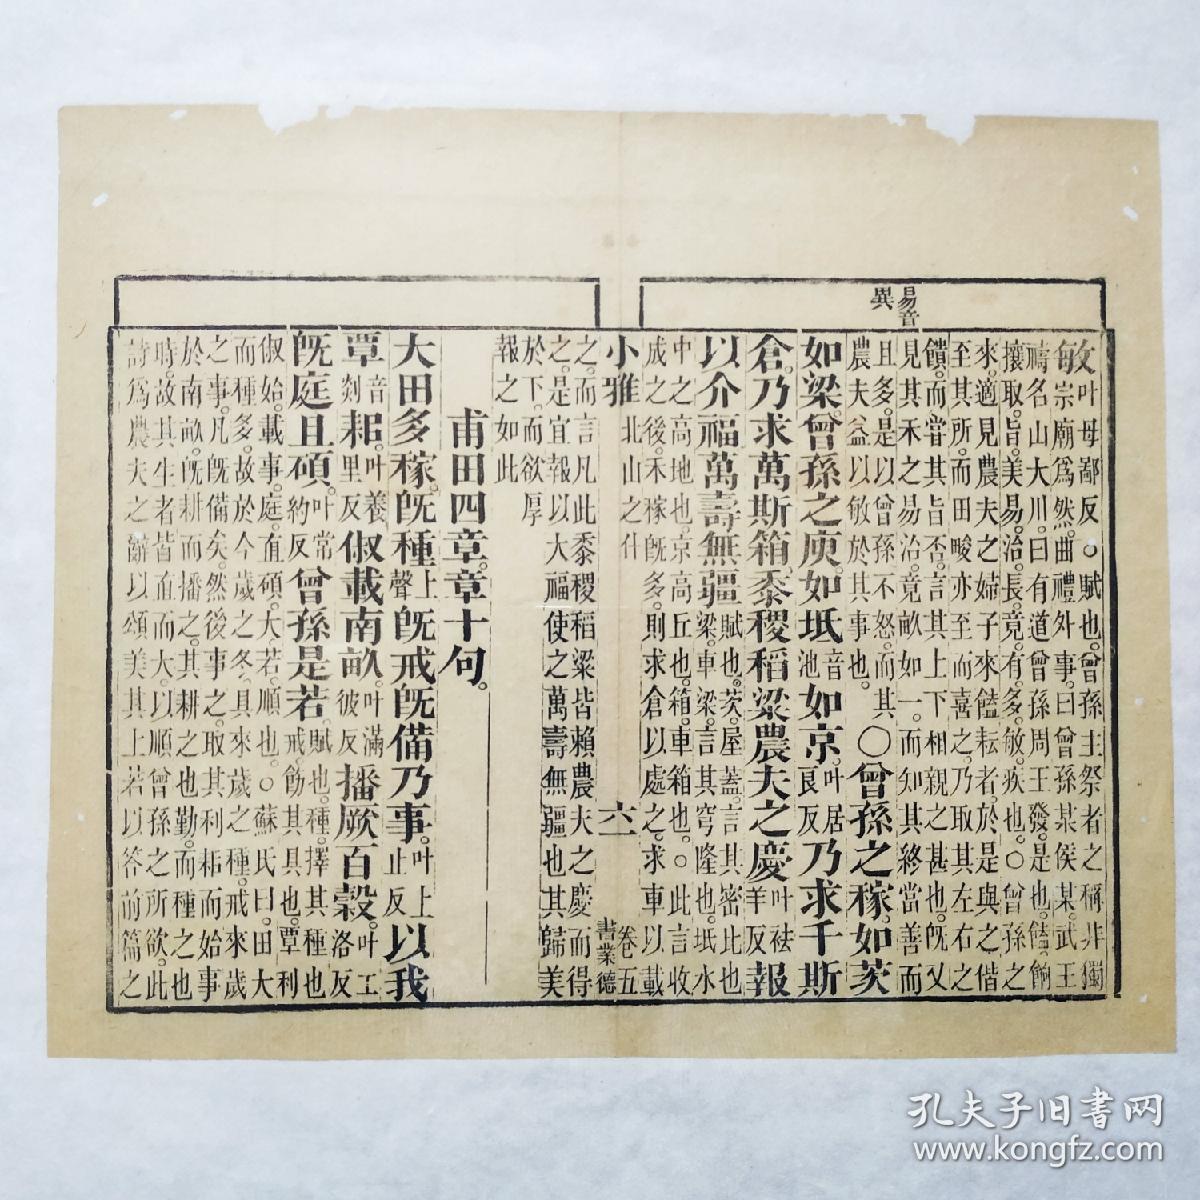 易音
異
敏叶母鄙反○賦也曾孫主祭者之稱非獨
宗廟爲然曲禮外事曰曾孫某侯某武王
禱名山大川曰有道曾孫周王發是也饁餉
攘取旨美易治長竟有多敏疾也○曾孫之
來適見農夫之婦子來饁耘者於是與之偕
至其所而田畯亦至而喜之乃取其左右之
饋而嘗其旨否言其上下相親之甚也旣又
見其禾之易治竟畝如一而知其終當善而
且多是以曾孫不怒而其
農夫益以敏於其事也○曾孫之稼如茨
如梁曾孫之庾如坻音池如京叶居良反乃求千斯
倉乃求萬斯箱黍稷稻粱農夫之慶叶袪羊反報
以介福萬壽無疆賦也茨屋蓋言其密比也
梁車梁言其穹隆也坻水
中之高地也京高丘也箱車箱也○此言收
成之後禾稼旣多則求倉以處之求車以載
小雅 北山之什 六一 卷五 書業德
之而言凡此黍稷稻粱皆賴農夫之慶而得
之是宜報以大福使之萬壽無疆也其歸美
於下而欲厚
報之如此
甫田四章章十句
大田多稼旣種上聲旣戒旣備乃事叶上止反以我
覃音剡耜叶養里反俶載南畝叶滿彼反播厥百穀叶工洛反
旣庭且碩叶常約反曾孫是若賦也種擇其種也
戒飭其具也覃利
俶始載事庭直碩大若順也○蘇氏曰田大
而種多故於今歲之冬具來歲之種戒來歲
之事凡旣備矣然後事之取其利耜而始事
於南畝旣耕而播之其耕之也勤而種之也
時故其生者皆直而大以順曾孫之所欲此
詩爲農夫之辭以頌美其上若以答前篇之
孔夫子旧书网
www.kongfz.com